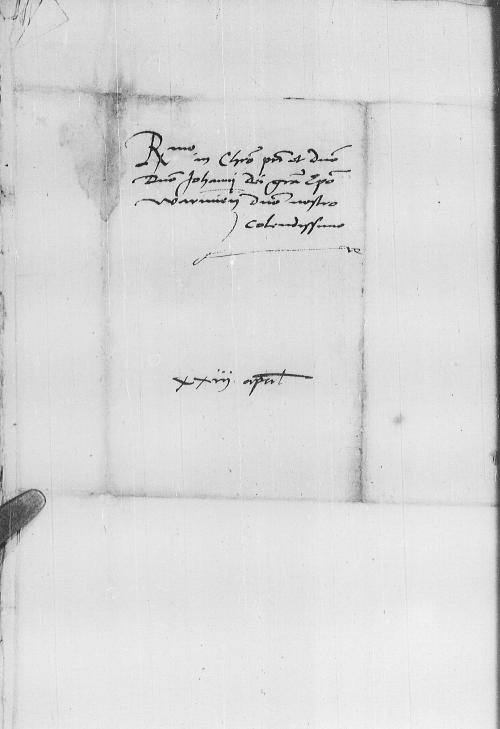 R mo in Chro pri et dno
Dno Johanni Dei gra Epo
Warmien dno nostro
Colendissimo
xxiij april